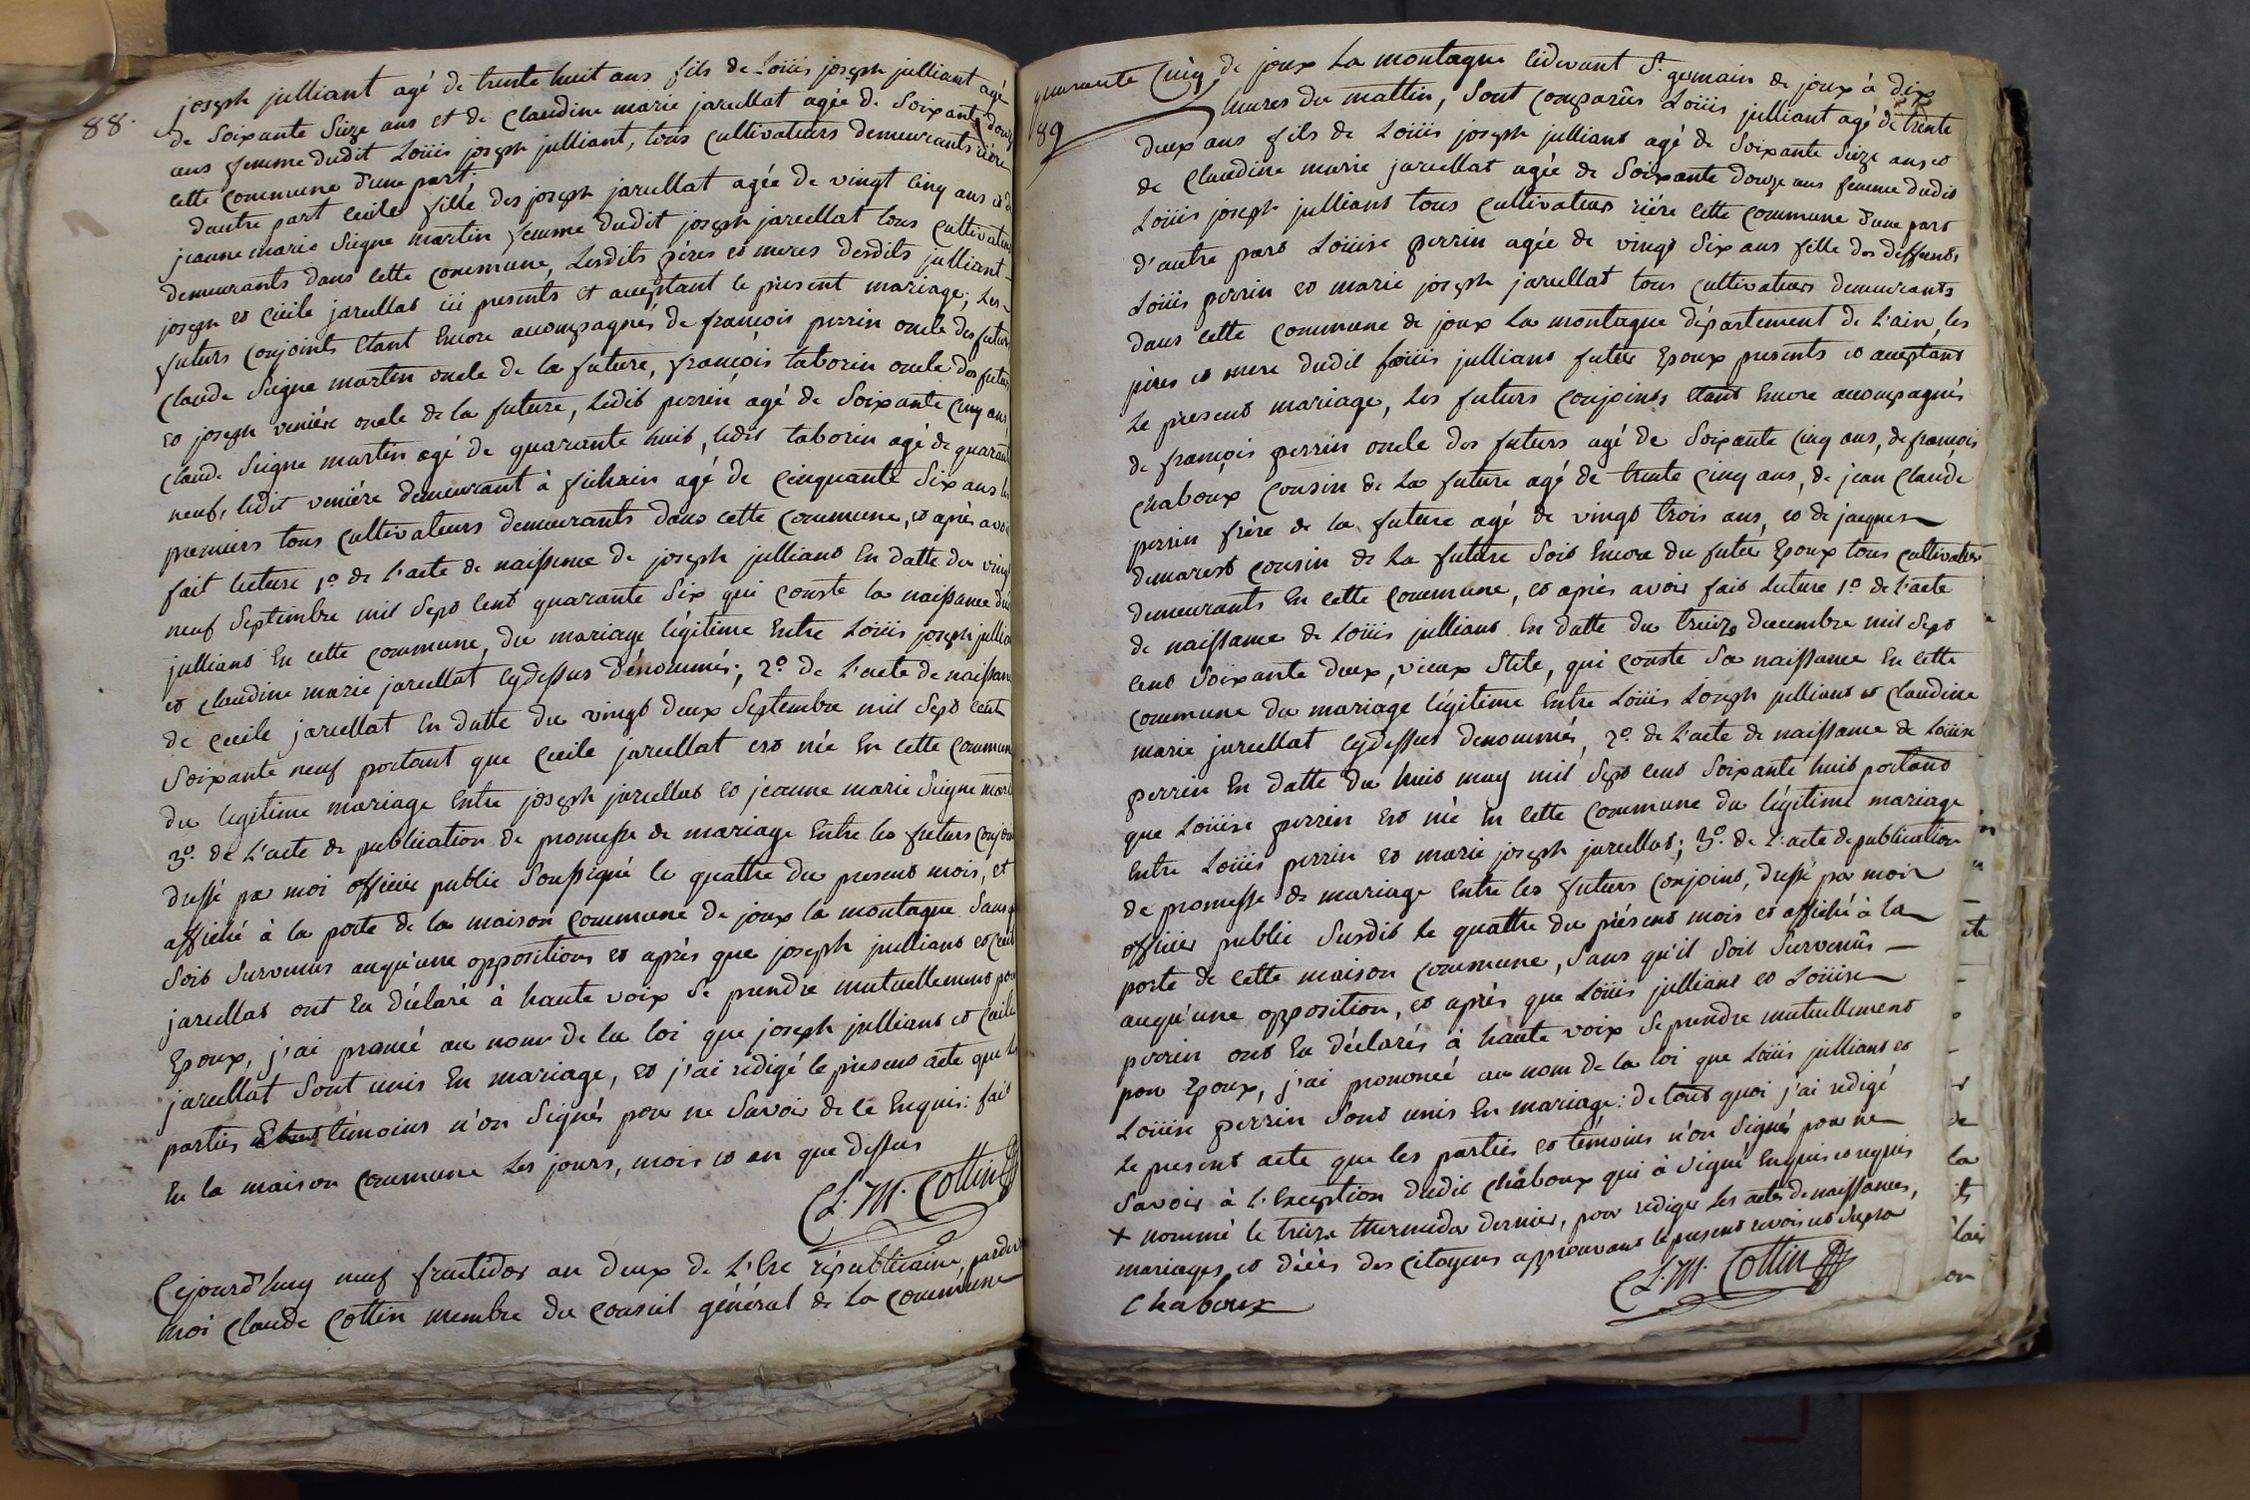 88.
joseph julliant agé de trente huit ans fils de Loüis joseph julliant agé
de Soixante Seize ans et de Claudine marie jarullat agée de Soixante douze
ans femme dudit Loüis joseph julliant, tous Cultivateurs demeurants rière
cette Commune d'une part.
dautre part Cecile fille des joseph jarullat agée de vingt Cinq ans et de
jeanne marie Seigne martin femme dudit joseph jarullat tous Cultivateurs
demeurants dans cette Commune, Lesdits pères et meres desdits julliant
joseph et Cécile jarullat ici présents et acceptant le présent mariage; Les
futurs Conjoints étant Encore accompagnés de françois perrin oncle des futurs
Claude Seigne martin oncle de la future, françois taborin oncle des futurs
et joseph venière oncle de la future, Ledit perrin agé de Soixante Cinq ans,
Claude Seigne martin agé de quarante huit, ledit taborin agé de quarante
neuf, ledit venière demeurant à agé de Cinquante Six ans les
premiers tous Cultivateurs demeurants dans cette Commune, et après avoir
fait lecture 1º de l'acte de naissance de joseph julliant En datte du vingt
neuf Septembre mil Sept Cent quarante Six qui Conste la naissance dud
julliant En cette Commune, du mariage légitime Entre Loüis joseph julliant
et Claudine marie jarullat Cydessus dénommés; 2º de l'acte de naissance
de Cecile jarullat En datte du vingt deux Septembre mil Sept Cent
Soixante neuf portant que Cecile jarullat est née En cette Commune
du légitime mariage Entre joseph jarullat et jeanne marie Seigne martin
3º de l'acte de publication de promesse de mariage Entre les futurs Conjoints
dressé par moi officier public Soussigné le quattre du present mois, et
affiché à la porte de la maison Commune de joux la montagne Sans qu
Soit Survenus auqu'une opposition et après que joseph julliant et Cecile
jarullat ont Eu déclaré à haute voix Se prendre mutuellement pour
Epoux, j'ai prononcé au nom de la loi que joseph julliant et Cecile
jarullat Sont unis En mariage, et j'ai rédigé le présent acte que les
parties et témoins n'on Signés pour ne Savoir de ce Enquis: fait
En la maison Commune les jours, mois et an que dessus
C.L. M. Cottin
Cejourd'huy neuf fructidor an deux de L'Ere républicaine, pardevant
moi Claude Cottin membre du Conseil général de la Commune
quarante Cinq
89
de joux La montagne cidevant St. germain de joux à dix
heures du mattin, Sont Comparûs Loüis julliant agé de trente
deux ans fils de Loüis joseph julliant agé de Soixante Seize ans et
de Claudine marie jarullat agée de Soixante douze ans femme dudit
Loüis joseph julliant tous Cultivateurs rière cette Commune d'une part
d'autre part Loüise perrin agée de vingt Six ans fille des deffunts
Loüis perrin et marie joseph jarullat tous Cultivateurs demeurants
dans cette Commune de joux La montagne département de L'ain, les
pères et mere dudit Loüis julliant futur Epoux presents et acceptant
Le present mariage, Les futurs Conjoints étant Encore accompagnés
de françois perrin oncle des futurs agé de Soixante Cinq ans, de françois
Chaboux Cousin de La future agé de trente Cinq ans, de jean Claude
perrin frère de la future agé de vingt trois ans, et de jacques
demarest Cousin de La future Soit Encore du futur Epoux tous Cultivateurs
demeurants En cette Commune, et après avoir fait Lecture 1º de L'acte
de naissance de Loüis julliant En datte du treize decembre mil Sept
Cent Soixante deux, vieux Stile, qui Conste Sa naissance En cette
Commune du mariage légitime Entre Loüis Joseph julliant et Claudine
marie jarullat Cydessus denommés, 2º de L'acte de naissance de Loüise
perrin En datte du huit may mil Sept Cent Soixante huit portant
que Loüise perrin Est né En cette Commune du légitime mariage
Entre Loüis perrin et marie joseph jarullat; 3º de L'acte de publication
de promesse de mariage Entre les futurs Conjoint, dressé par moi
officier public Susdit le quattre du présent mois et affiché à la
porte de cette maison Commune, Sans qu'il Soit Survenûs
auqu'une opposition, et après que Loüis julliant et Loüise
perrin ont Eu déclarés à haute voix Se prendre mutuellement
pour Epoux, j'ai prononcé au nom de la loi que Loüis julliant et
Loüise perrin Sont unis En mariage: de tout quoi j'ai rédigé
Le present acte que les parties et témoins n'on Signés pour ne
Savoir à l'Exception dudit Chaboux qui à Signé Enquis et requis
+ nommé le treize thermidor dernier, pour rediger Les actes de naissances,
mariages et décès des Citoyens approuvant le présent renvoi et
C.L. M. Cottin
Chaboux